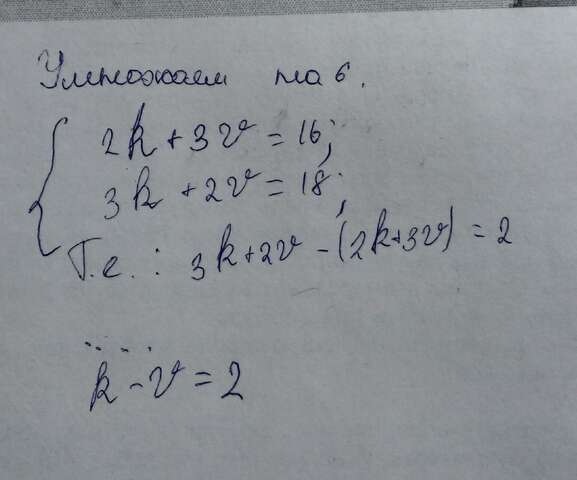 Умножаем на 6.
2k + 3v = 16;
3k + 2v = 18;
Т.е.: 3k + 2v - (2k + 3v) = 2
....
k - v = 2